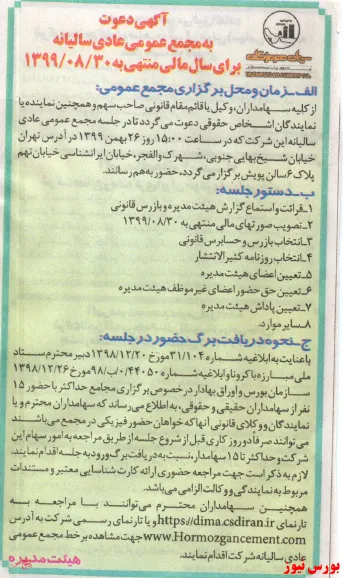 آگهی دعوت
به مجمع عمومی عادی سالیانه
برای سال مالی منتهی به ۱۳۹۹/۰۸/۳۰
الف_زمان و محل برگزاری مجمع عمومی:
از کلیه سهامداران، وکیل یا قائم مقام قانونی صاحب سهم و همچنین نماینده یا
نمایندگان اشخاص حقوقی دعوت می گردد تا در جلسه مجمع عمومی عادی
سالیانه این شرکت که در ساعت ۱۵:۰۰ روز ۲۶ بهمن ۱۳۹۹ در آدرس تهران
خیابان شیخ بهایی جنوبی، شهرک والفجر، خیابان ایرانشناسی خیابان نهم
پلاک ۶ سالن پویش برگزار می گردد، حضور به هم رسانند.
ب_دستور جلسه:
۱_قرائت و استماع گزارش هیئت مدیره و بازرس قانونی
۲_تصویب صورتهای مالی منتهی به ۱۳۹۹/۰۸/۳۰
۳_انتخاب بازرس و حسابرس قانونی
۴_انتخاب روزنامه کثیر الانتشار
۵_تعیین اعضای هیئت مدیره
۶_تعیین حق حضور اعضای غیر موظف هیئت مدیره
۷_تعیین پاداش هیئت مدیره
۸_سایر موارد.
ج_نحوه دریافت برگ حضور در جلسه:
با عنایت به ابلاغیه شماره ۳۱/۱۰۴ مورخ ۱۳۹۸/۱۲/۲۰ دبیر محترم ستاد
ملی مبارزه با کرونا و ابلاغیه شماره ۴۴۰۵۰/ب/۹۸ مورخ ۱۳۹۸/۱۲/۲۶
سازمان بورس و اوراق بهادار در خصوص برگزاری مجامع حداکثر با حضور ۱۵
نفر از سهامداران حقیقی و حقوقی، به اطلاع می رساند که سهامداران محترم و یا
نمایندگان و وکلای قانونی آنها که خواهان حضور فیزیکی در مجمع می باشند
می توانند صرفا دو روز کاری قبل از شروع جلسه از طریق مراجعه به امور سهام این
شرکت و حداکثر تا ۱۵ سهامدار، نسبت به دریافت برگ ورود به جلسه اقدام نمایند.
لازم به ذکر است جهت مراجعه حضوری ارائه کارت شناسایی معتبر و مستندات
مربوط به نمایندگی و وکالت الزامی می باشد.
همچنین سهامداران محترم می توانند با مراجعه به
تارنمای https://dima.csdiran.ir و یا تارنمای رسمی شرکت به آدرس
www.Hormozgancement.com جهت مشاهده بر خط مجمع عمومی
عادی سالیانه شرکت اقدام نمایند.
هیئت مدیره
بورس نیوز